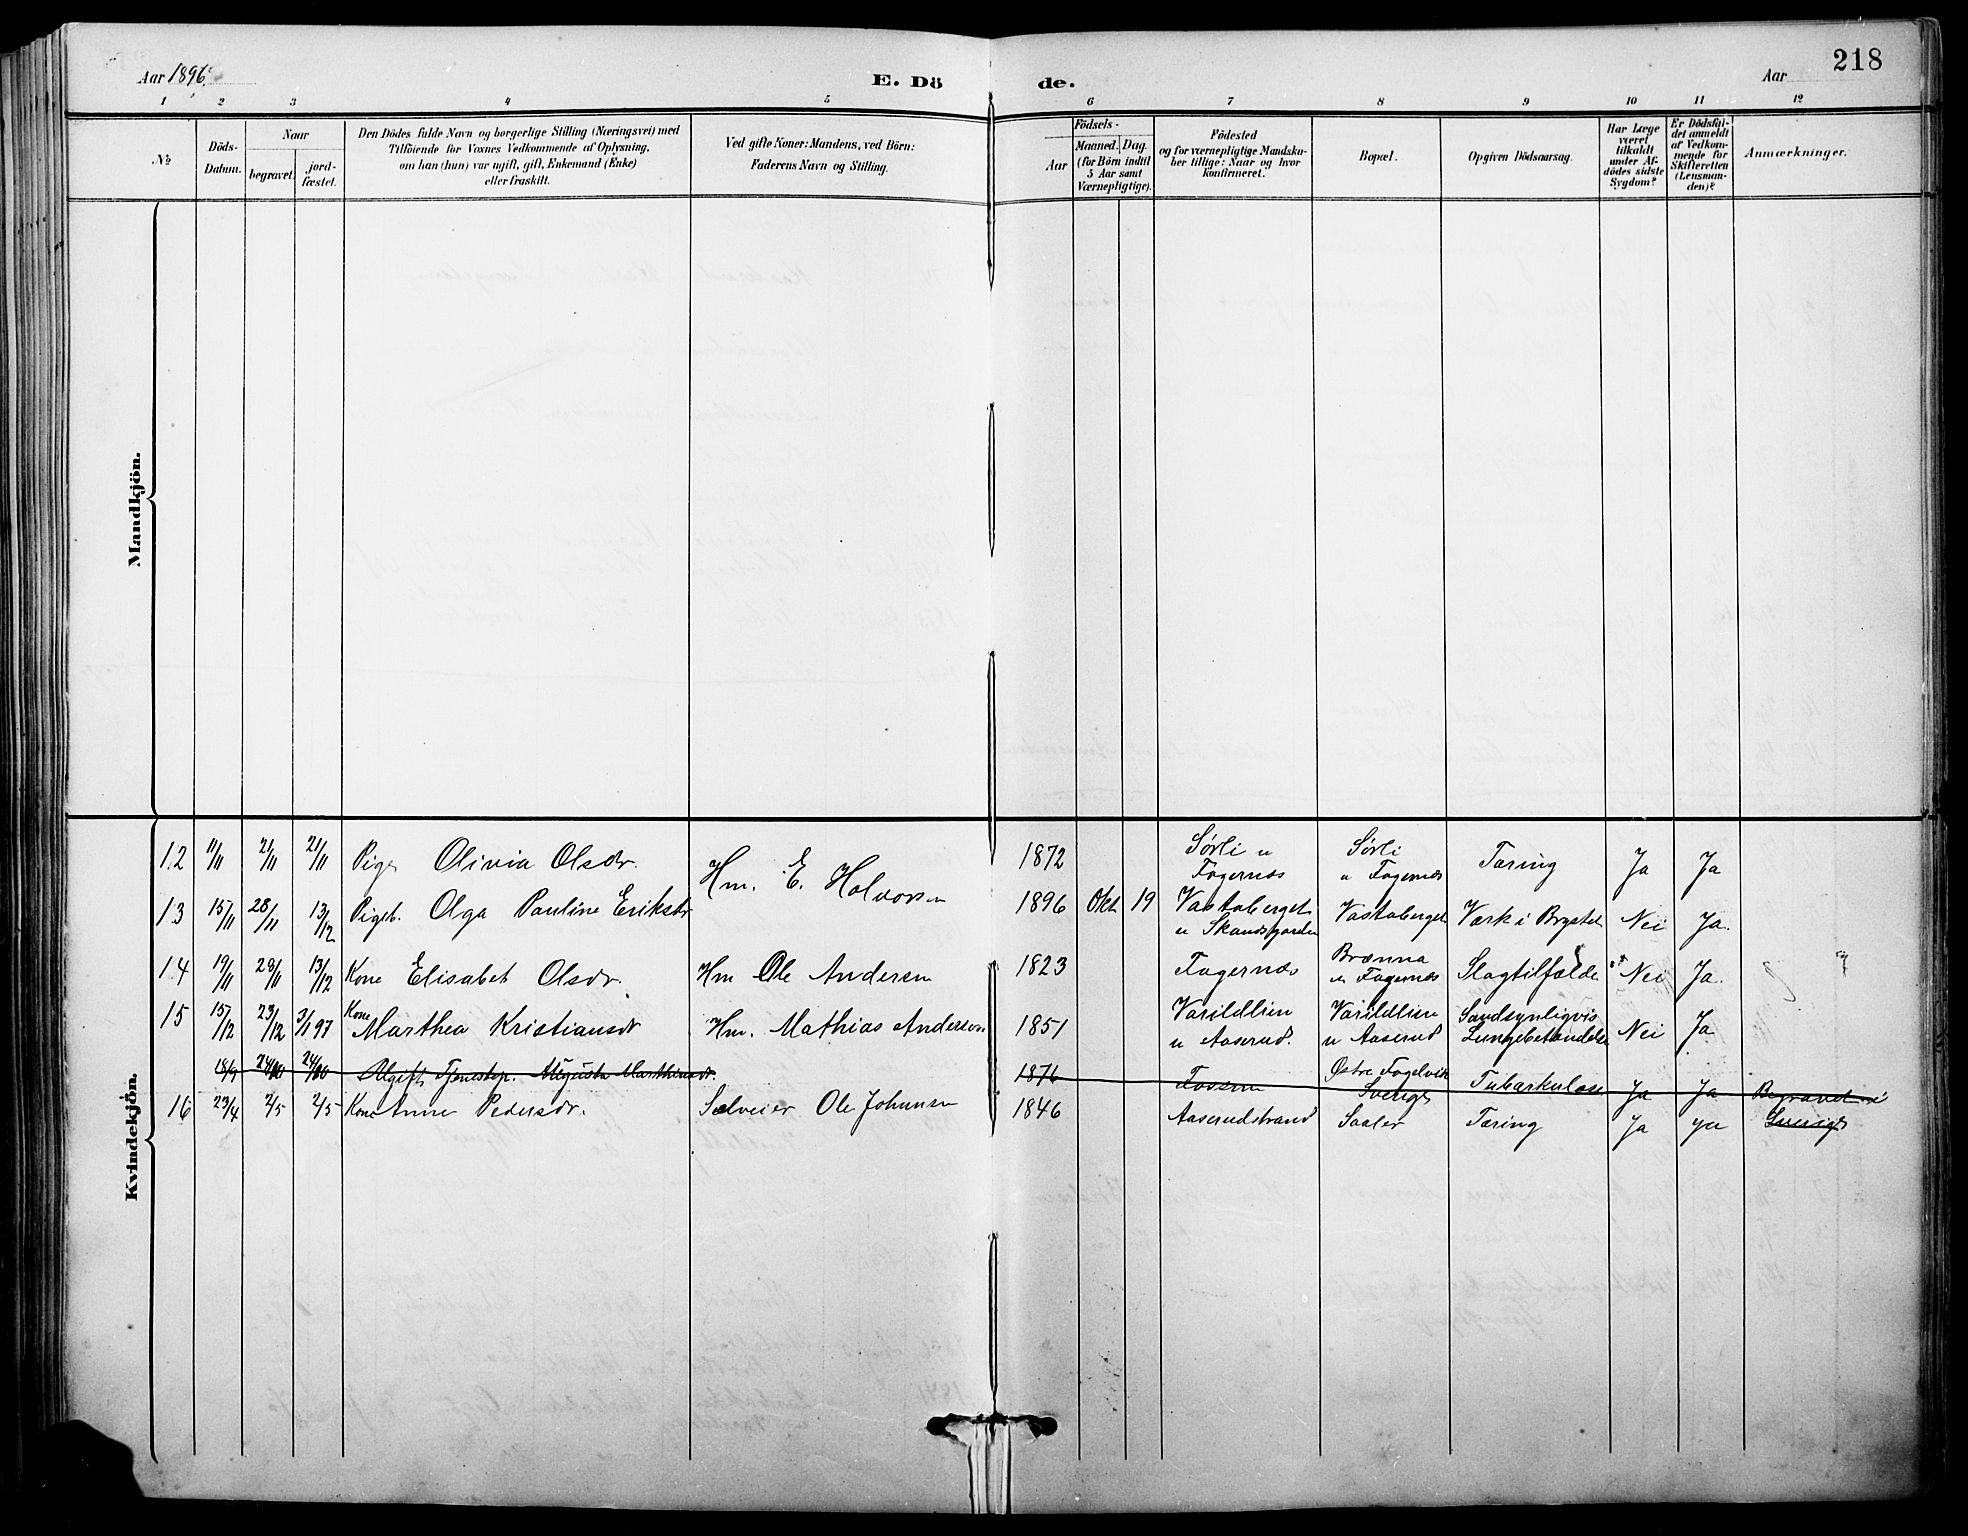 Aar 1896.
E. Dö
de.
Aar
218
1 2 3 4 5 6 7 8 9 10 11 12
No
Döds-Datum.
Naar
begravet.
jord-fæstet.
Den Dödes fulde Navn og borgerlige Stilling (Næringsvei) med
Tilföiende for Voxnes Vedkommende af Oplysning,
om han (hun) var ugift, gift, Enkemand (Enke)
eller fraskilt.
Ved gifte Koner: Mandens, ved Börn:
Faderens Navn og Stilling.
Födsels-
Aar
Maaned. Dag.
(for Börn indtil
5 Aar samt
Værnepligtige).
Födested
og for værnepligtige Mandska-
ber tillige: Naar og hvor
konfirmeret.
Bopæl.
Opgiven Dödsaarsag.
Har Læge
været
tilkaldt
under Af-
dödes sidste
Sygdom?
Er Dödsfal-
det anmeldt
af Vedkom-
mende for
Skifteretten
(Lensman-
den)?
Anmærkninger.
Mandkjön.
Kvindekjön.
12 11/11 21/11 21/11 Pige Olivia Olsdr. 1872 Sørli u Fagernæs Sørli u Fagernæs Tæring Ja Ja
13 15/11 28/11 13/12 Pigeb. Olga Pauline Eriksdr Hm. E. Halvorsen 1896 Okt 19 Vastaberget u Skandsgarden Vastaberget Værk i Brystet Nei Ja.
14 19/11 28/11 13/12 Kone Elisabet Olsdr. Hm Ole Andersen 1823 Fagernæs Brænna u Fagernæs Slagtilfælde Nei Ja.
15 15/12 23/12 3/1 97 Kone Marthea Kristiansdr Hm. Mathias Anderson 1851 Varildlien u Aaserud. Varildlien u Aaserud Sandsynligvis Lungebetændelse Nei Ja
18/9 24/10 24/10 Ugift Tjenestep. Augusta Marthinsdr. 1876 Østre Fagelvik Sverige Tubærkulose Ja Ja Begravet i Sverige
16 23/4 2/5 2/5 Kone Anne Pedersdr. Selveier Ole Johansen 1846 Aaserudstrand Saaler Tæring Ja ja